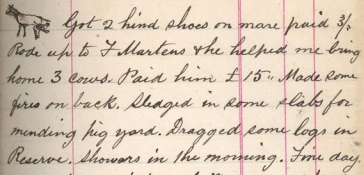 Got 2 hind shoes on mare paid 3/-
Rode up to F Martens & he helped me bring
home 3 cows. Paid him £15,, Made some
fires on back. Sledged in some slabs for
mending pig yard. Dragged some logs in
Reserve. Showers in the morning. Fine day.